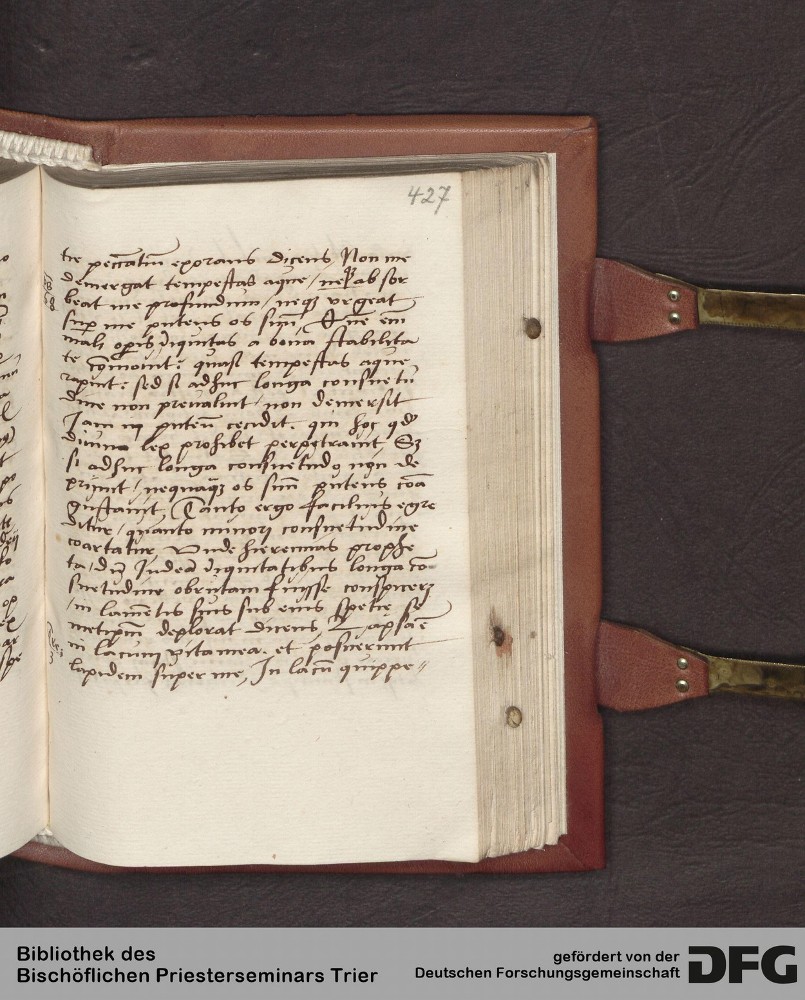 427
tre peccatũ exorans dicens Non me
demergat tempestas aque / neqȝ absor
beat me profundum / neqȝ vrgeat
sup me puteus os suũ, Que em̃
mali oꝑis iniquitas a bona stabilita
te cõmouit: quasi tempestas aque
rapuit: sed si adhuc longa consuetu
dine non preualuit / non demersit
Iam in puteũ cecidit. qui hoc qd
diuina lex prohibet perpetrauit, Sȝ
si adhuc longa consuetudo non de
primit / nequaqȝ os suũ puteus coã
gustauit, Tanto ergo facilius egre
ditur / quanto minori consuetudine
coartatur, Vnde hieremias prophe
ta / dũ Iudeã iniquitatibus longa cõ
suetudine obrutam fuisse conspiceret
/ in lamẽtis suis sub eius specie se
metipm̃ deplorat dicens, Lapsa ẽ
in lacum vita mea. et posuerunt
lapidem super me, In lacũ quippe //
Bibliothek des
Bischöflichen Priesterseminars Trier
gefördert von der
Deutschen Forschungsgemeinschaft
DFG